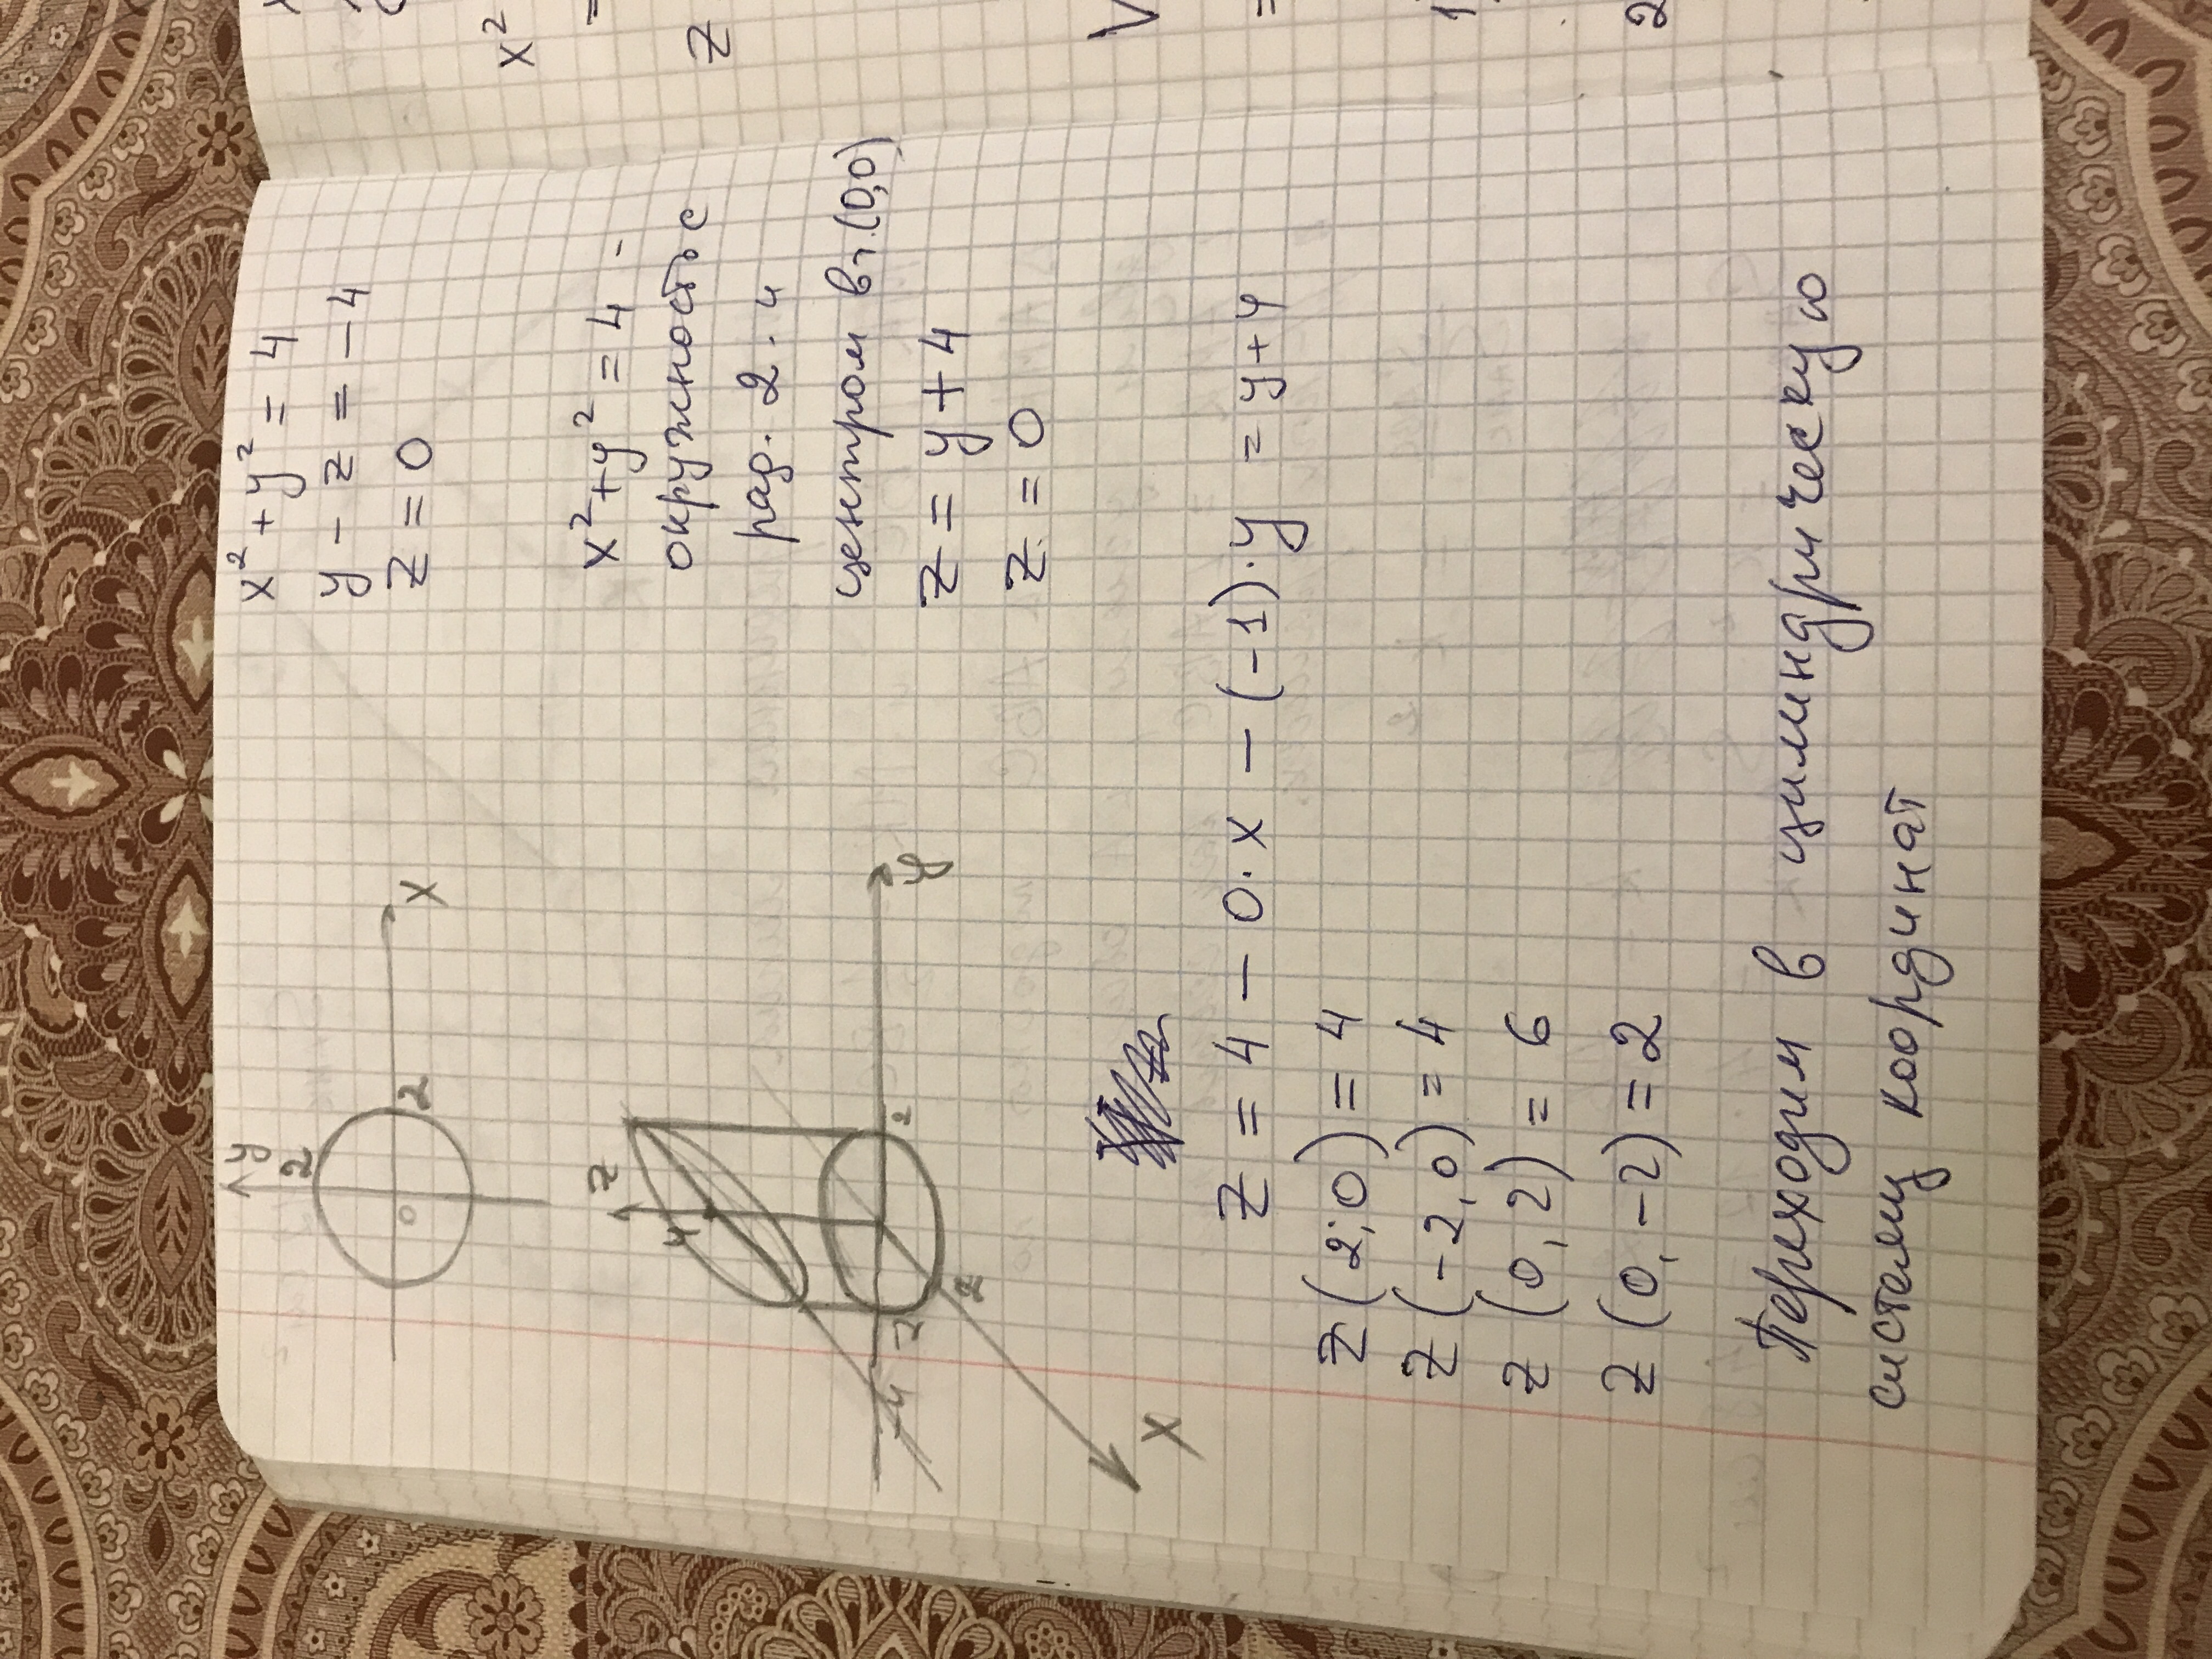 x² + y² = 4
y - z = -4
z = 0
y
2
0
2
x
x² + y² = 4 -
окружность с
рад. 2. и
центром в т. (0,0)
z = y + 4
z = 0
z
4
2
2
-4
y
x
z = 4 - 0·x - (-1)·y = y + 4
z (2; 0) = 4
z (-2, 0) = 4
z (0, 2) = 6
z (0, -2) = 2
Переходим в цилиндрическую
систему координат
x²
=
z
V
=
1
2